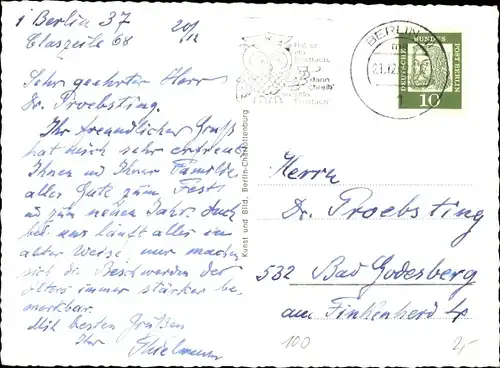 1 Berlin 37 20/12
Claszeile 68
Sehr geehrter Herr
Dr. Proebsting.
Ihr freundlicher Gruß
hat mich sehr erfreut
Ihnen u Ihrer Familie
alles Gute zum Fest
u zum neuen Jahr. Auch
bei uns läuft alles in
alter Weise, nur machen
sich die Beschwerden des
Alters immer stärker be-
merkbar.
Mit besten Grüßen
Ihr Thielmann
Kunst und Bild, Berlin-Charlottenburg
Hat er
dann
BERLIN
1
DEUTSCHE BUNDESPOST BERLIN
10
Herrn
Dr. Proebsting
532 Bad Godesberg
am Finkenherd 4
100
2,-